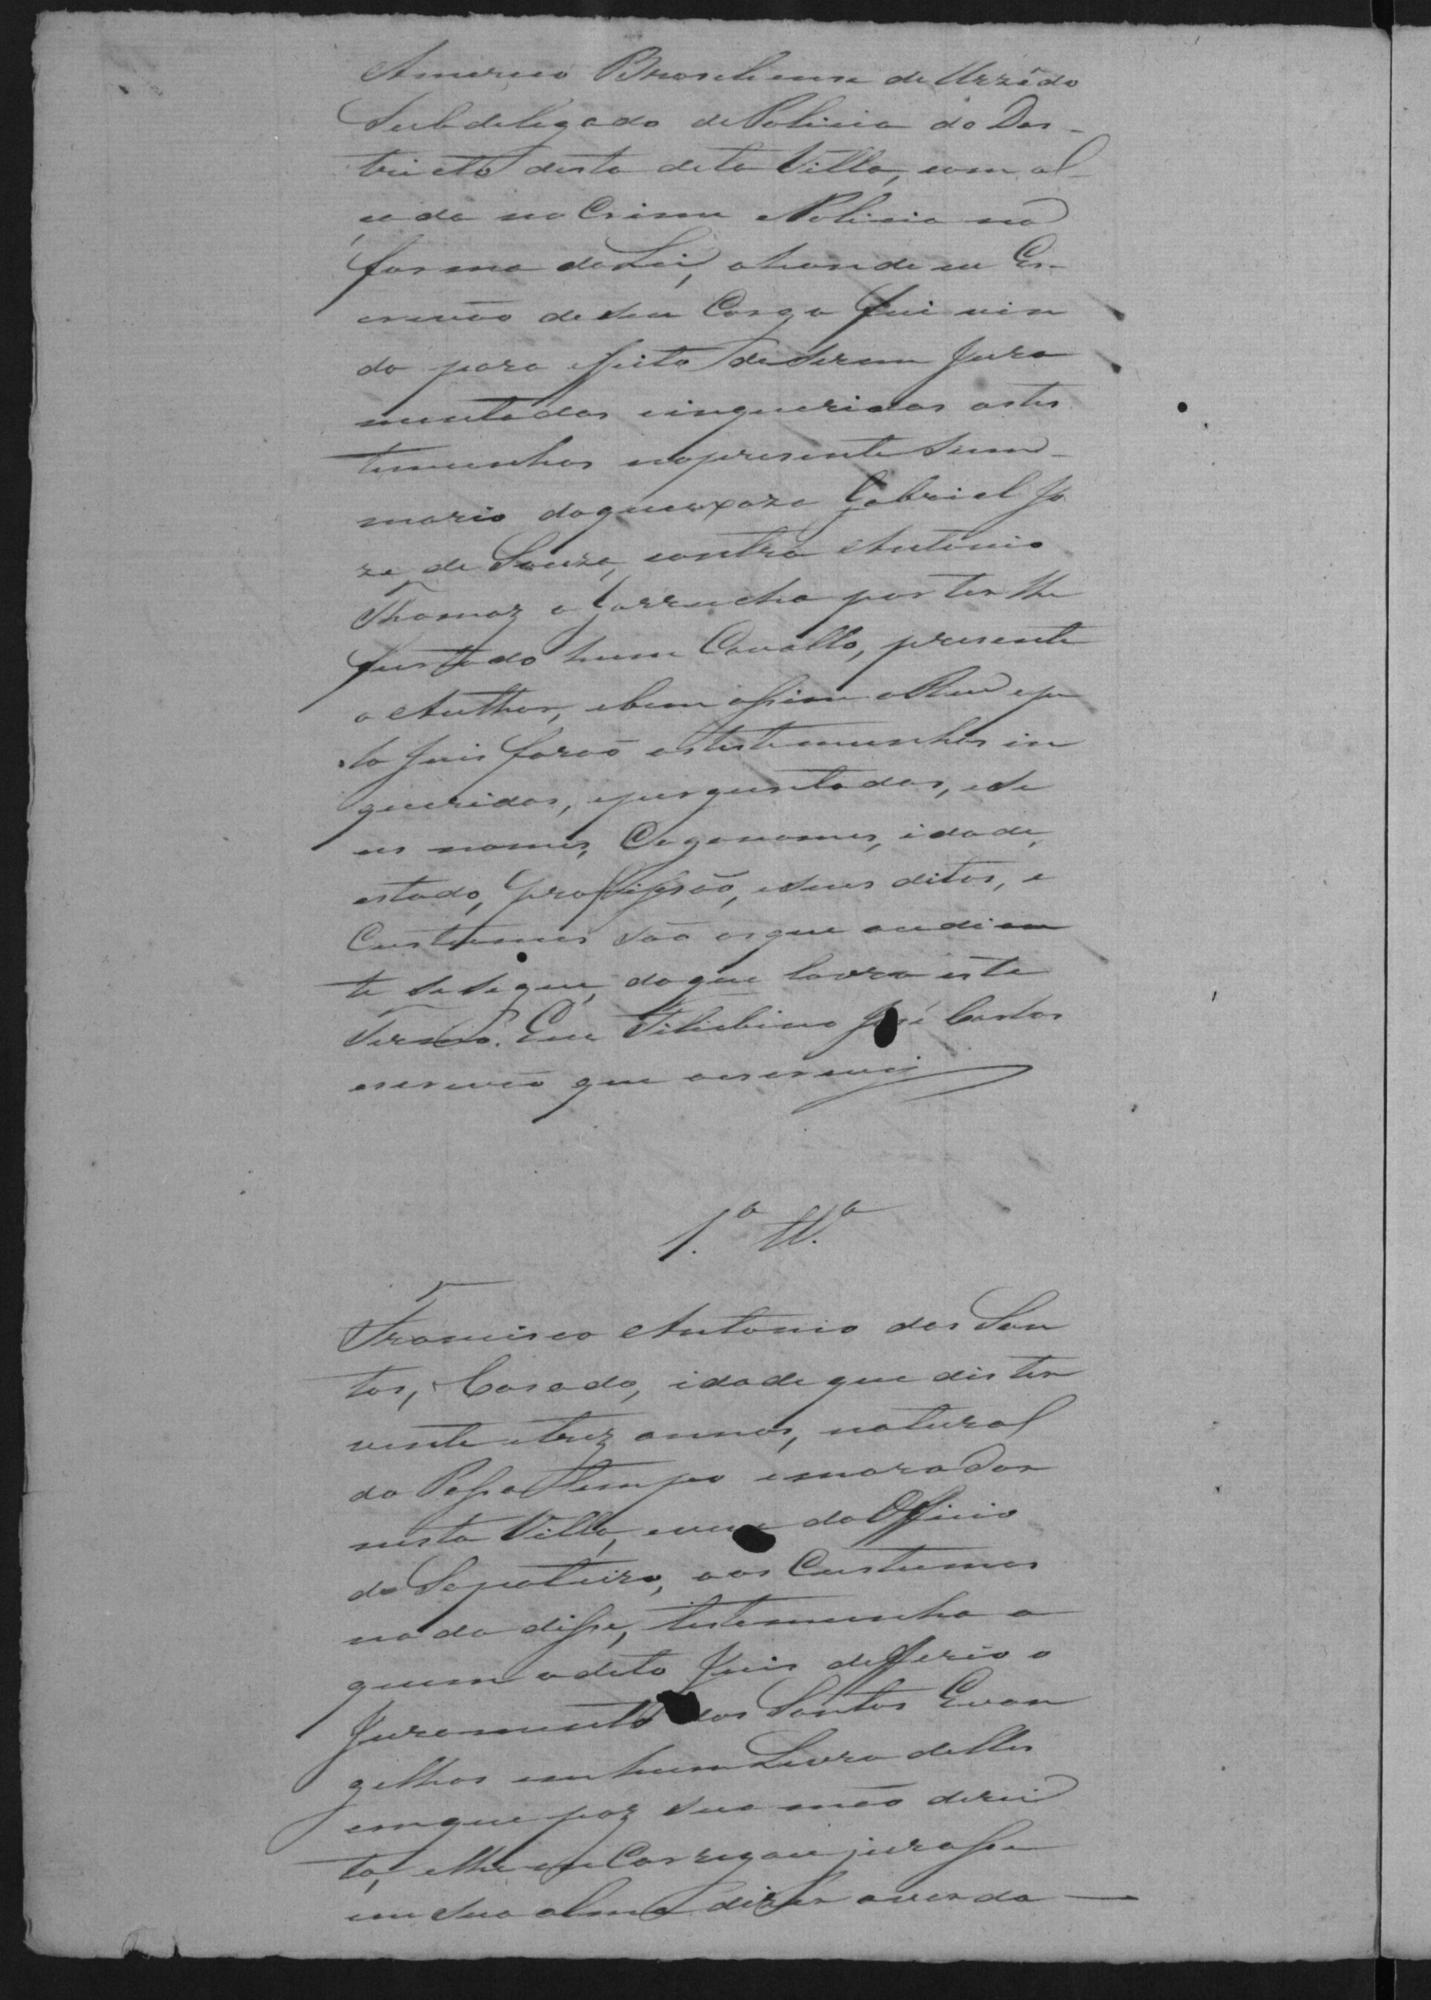 Americo Brasiliense de Urzêdo
Subdelegado de Policia do Des-
tricto desta dita Villa, com al-
çada no Crime e Policia na
forma da Lei, ahonde eu Es-
crivão de seu Cargo fui vin
do para effeito de serem Jura
mentadas e inqueridas as tes
temunhas no presente Sum-
mario da queixa Gabriel Jo
ze de Souza, contra Antonio
Thomaz o Garrucha por ter lhe
furtado hum Cavallo, presente
o Author, e bem assim o Reo e pe
lo Juis forão as testemunhas in
queridas, e perguntadas, e se
us nomes, Cognomes, idade,
estado, profissão, e seus ditos, e
Custumes são os que ao dian
te se segue, do que lavro este
Termo. Eu Filisbino José Carlos
escrivão que o escrevi
1.ª T.ª
Francisco Antonio dos San
tos, Casado, idade que dis ter
vinte e trez annos, natural
do Passa Tempo e morador
nesta Villa, e vive do Officio
de Sapateiro, e aos Custumes
nada disse, testemunha a
quem o dito Juis defferio o
Juramento dos Santos Evan
gelhos em hum Livro delles
em que poz sua mão direi
ta, e lhe encarregou jurasse
em sua alma dizer a verda